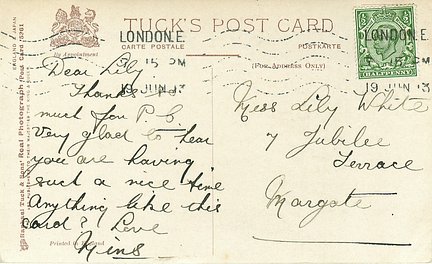 TUCK'S POST CARD
CARTE POSTALE
POSTKARTE
By Appointment
(FOR ADDRESS ONLY)
LONDON. E.
3 15 PM
19 JUN 13
LONDON. E.
19 JUN 13
HALFPENNY
Dear Lily
Thanks
much for P.C.
Very glad to hear
you are having
such a nice time
Anything like this
card? Love
Miss Lily White
7 Jubilee
Terrace
Margate
Raphael Tuck & Sons' "Real Photograph" Post Card
Printed in England